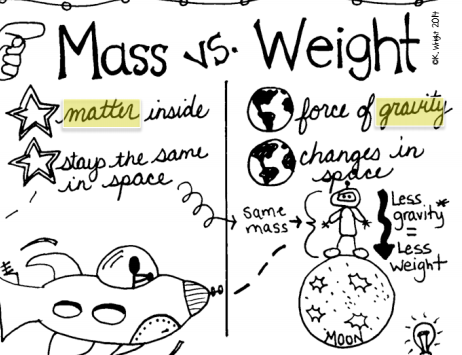 ©K. Wright 2014
Mass vs. Weight
matter inside
stays the same
in space
force of gravity
changes in
space
same
mass
Less
gravity*
=
Less
weight
MOON